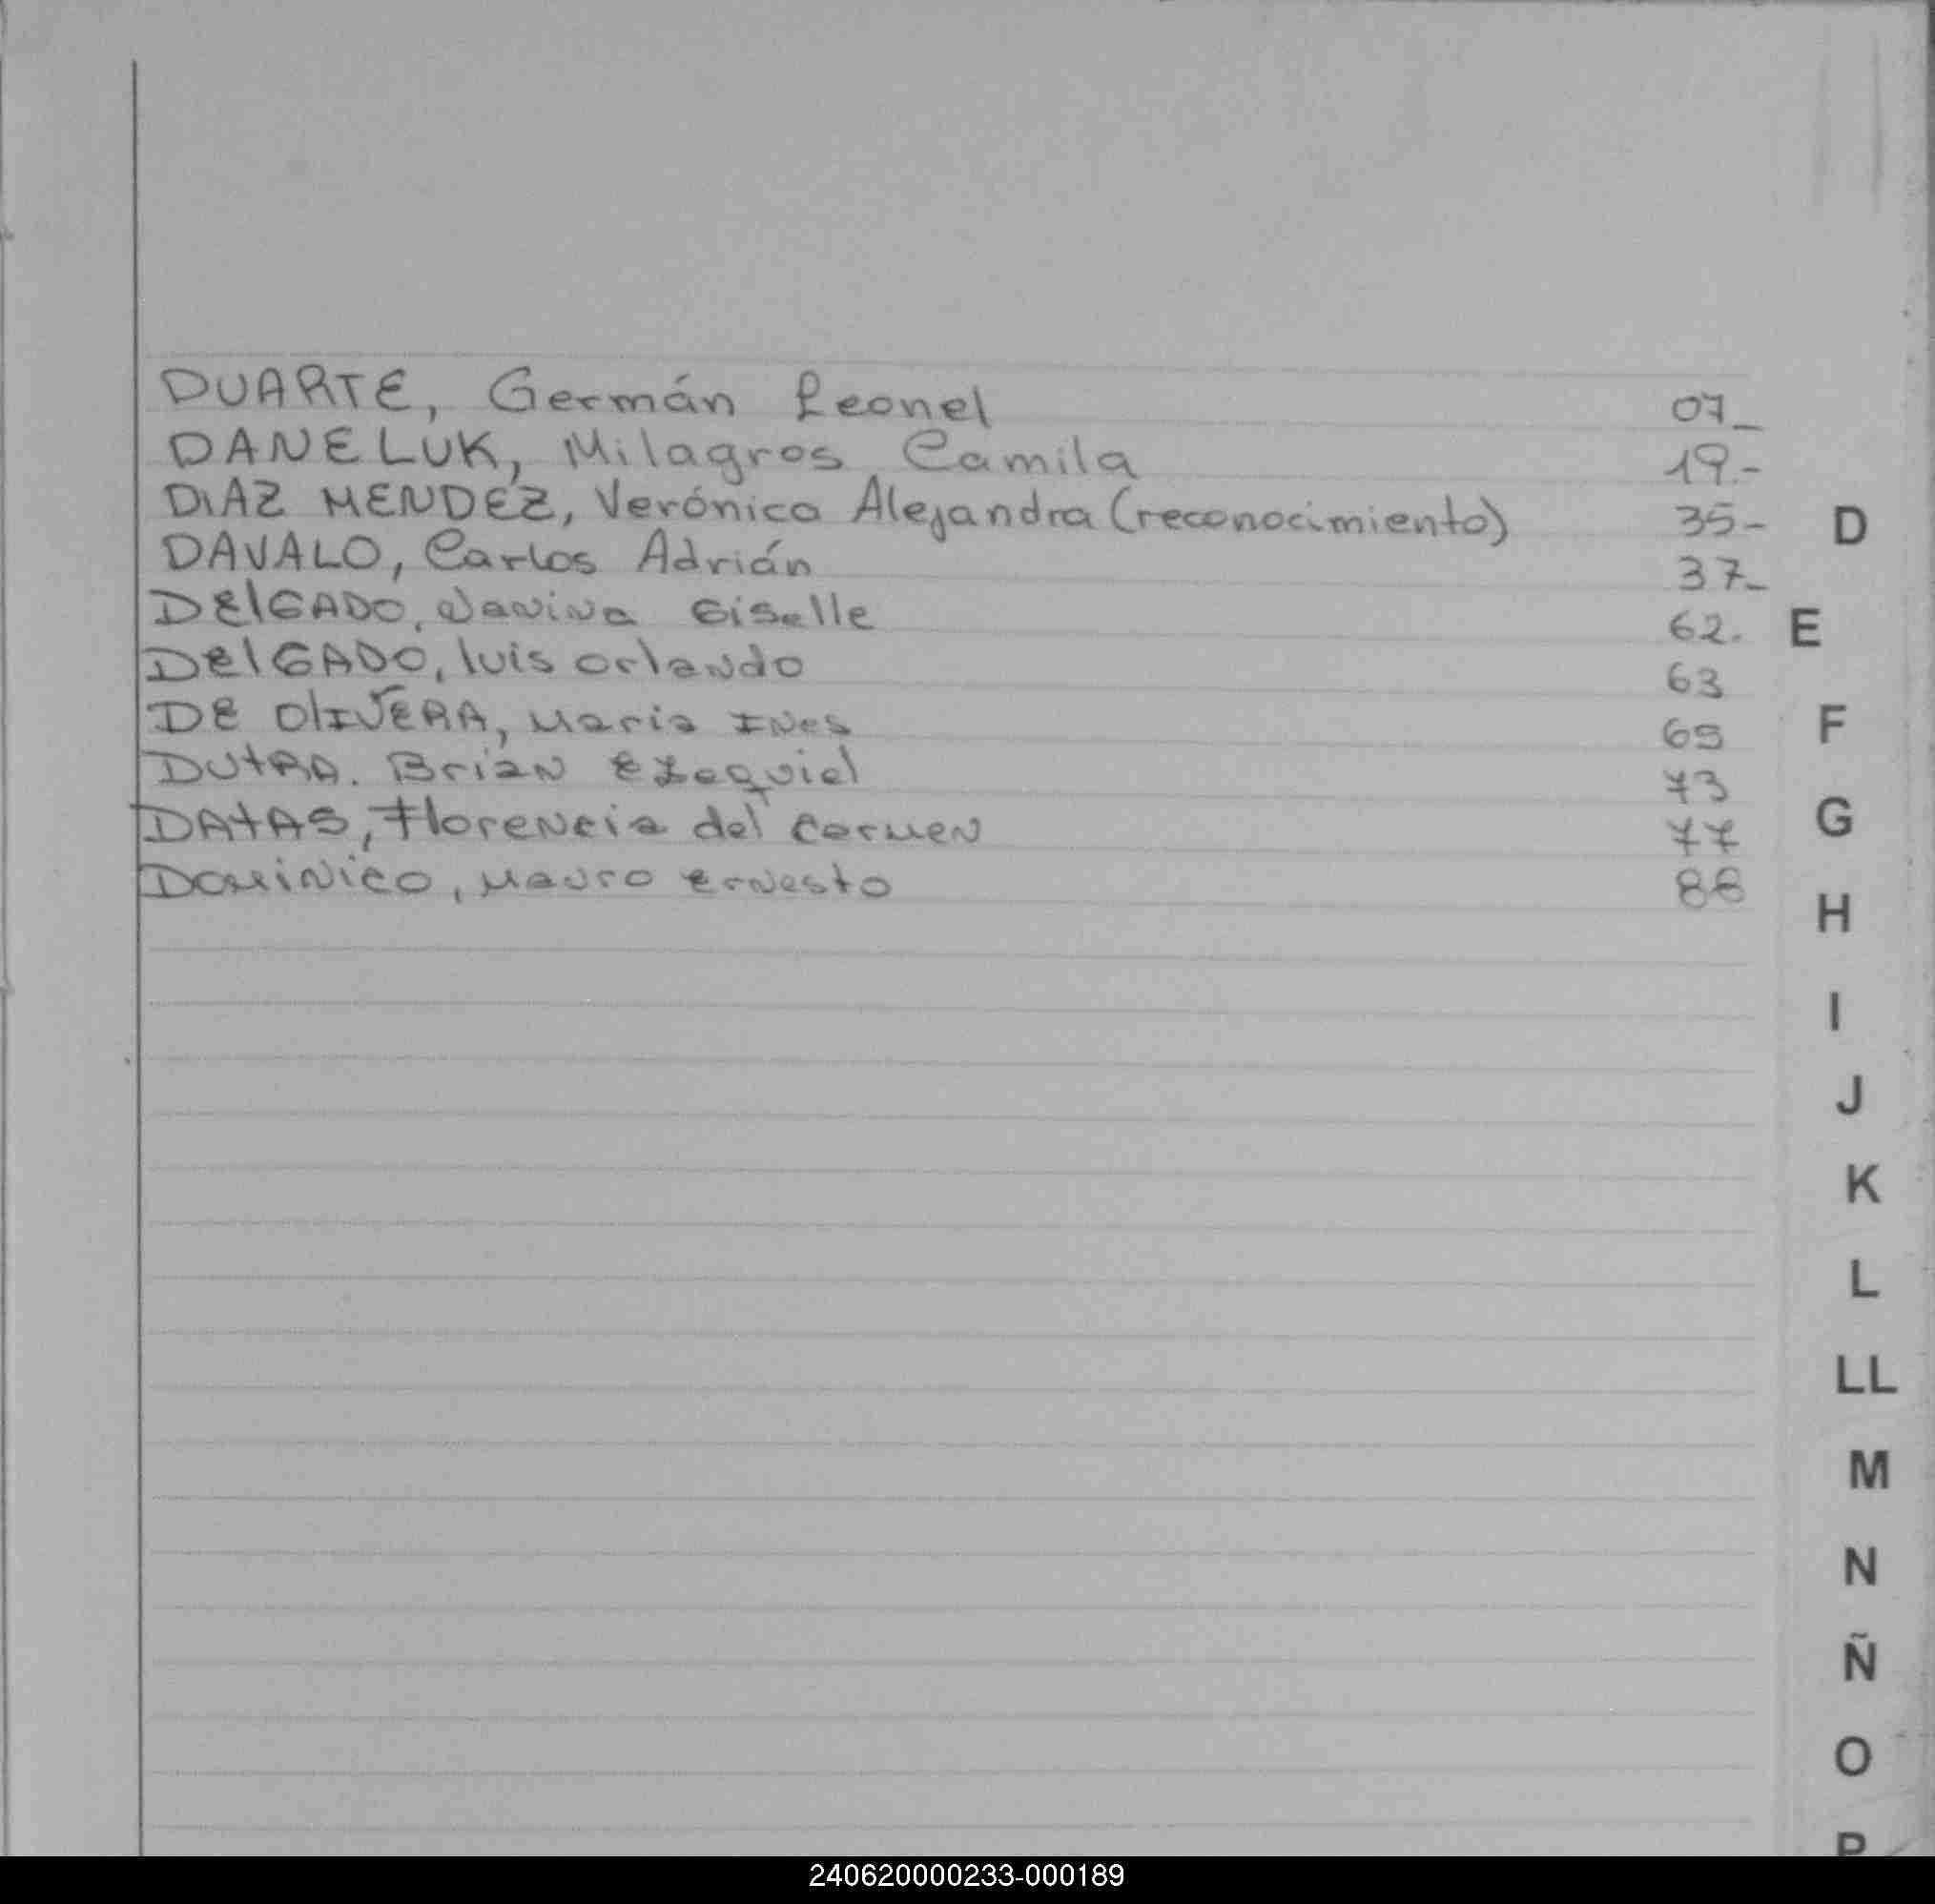 DUARTE, Germán Leonel 07_
DANELUK, Milagros Camila 19.-
DIAZ MENDEZ, Verónica Alejandra (reconocimiento) 35-
D
DAVALO, Carlos Adrián 37_
DElGADO, Nanina Giselle 62.
E
DElGADO, luis orlando 63
DE OlIVERA, Maria INes 69
F
DUtRA. BriaN Ezequiel 73
DAtAS, FloreNcia del carmeN 77
G
DOMiNico, Mauro erNesto 88
H
I
J
K
L
LL
M
N
Ñ
O
P
240620000233-000189